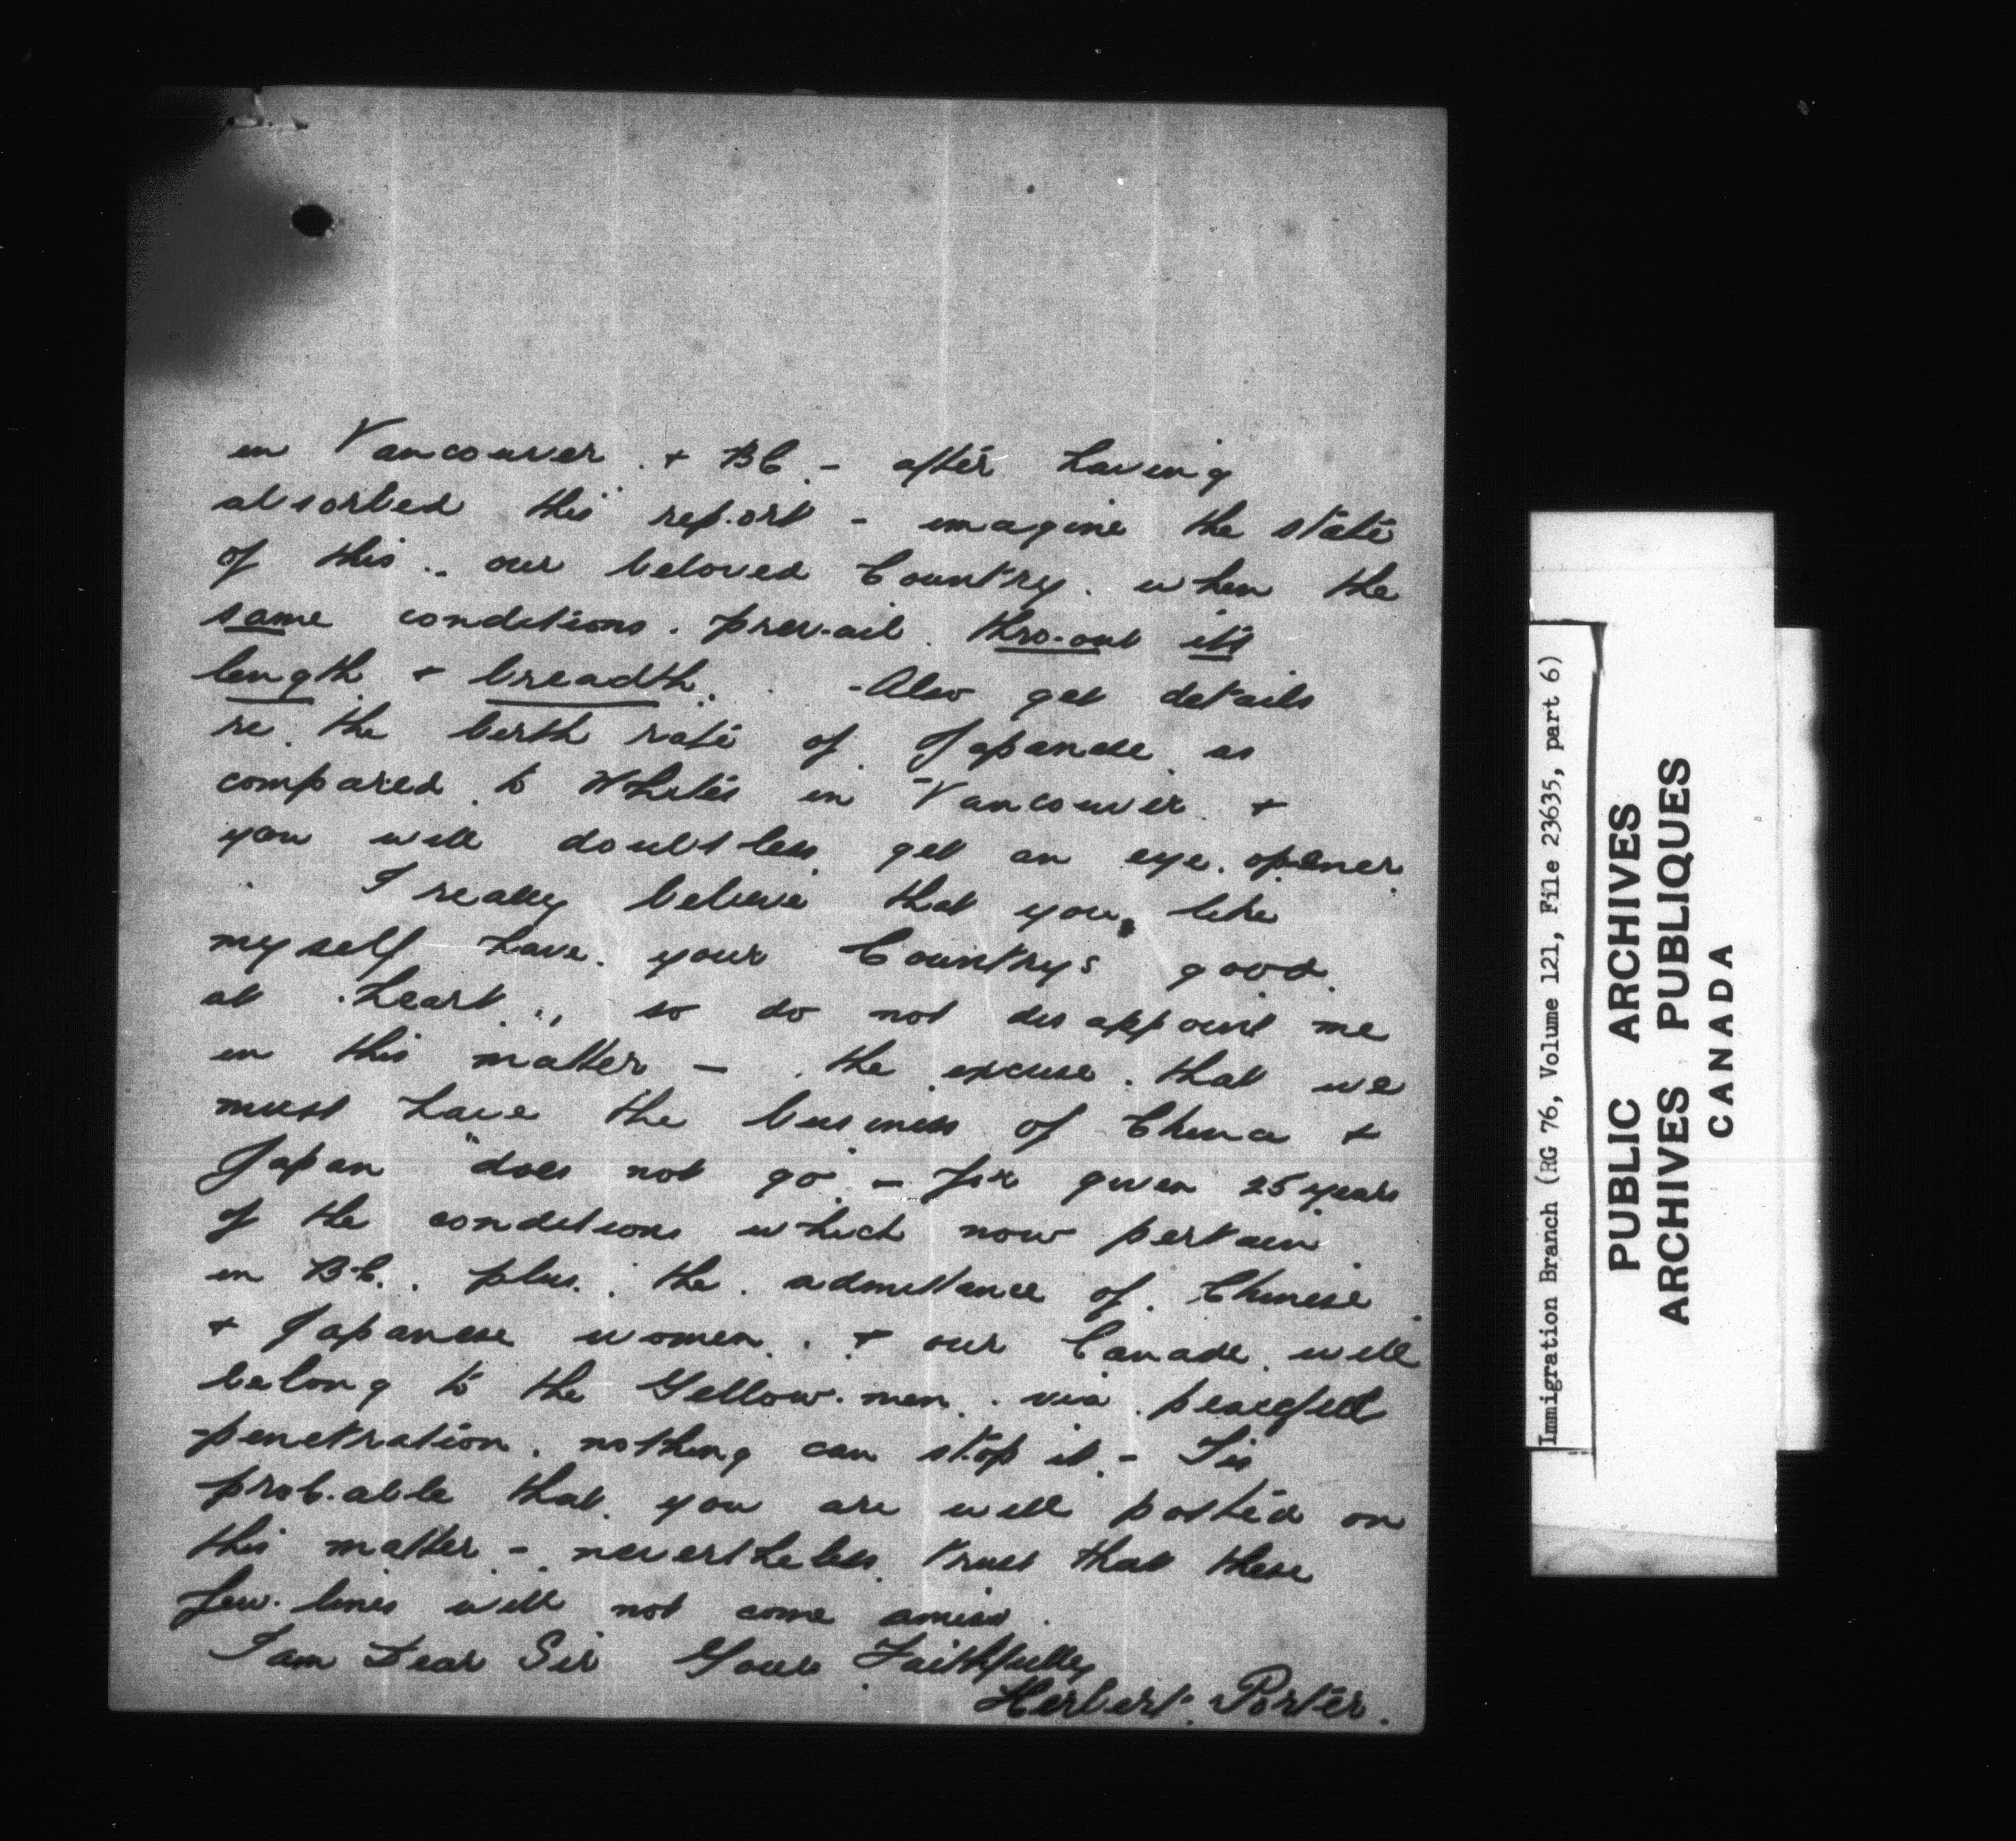 in Vancouver. & BC. - after having
absorbed this report - imagine the state
of this.. our beloved Country. when the
same conditions. prevail. thro-out it's
length & breadth. - Also get details
re. the berth rate of Japanese as
compared to Whites in Vancouver &
you will doubtless get an eye. opener.
I really believe that you, like
myself have. your Country's good.
at heart.,, so do not disappoint me
in this matter - the excuse. that we
must have the business of China &
Japan "does not go" - for given 25 years
of the conditions which now pertain
in B.C. plus. the. admittance of. Chinese
& Japanese women. . & our Canada. will
belong to the Yellow-men. via. peaceful
penetration. nothing can stop it. - Tis
prob.able that. you are well posted on
this matter - nevertheless. trust that these
few. lines will not come amiss.
I am Dear Sir Yours Faithfully
Herbert. Porter.
Immigration Branch (RG 76, Volume 121, File 23635, part 6)
PUBLIC ARCHIVES
ARCHIVES PUBLIQUES
CANADA